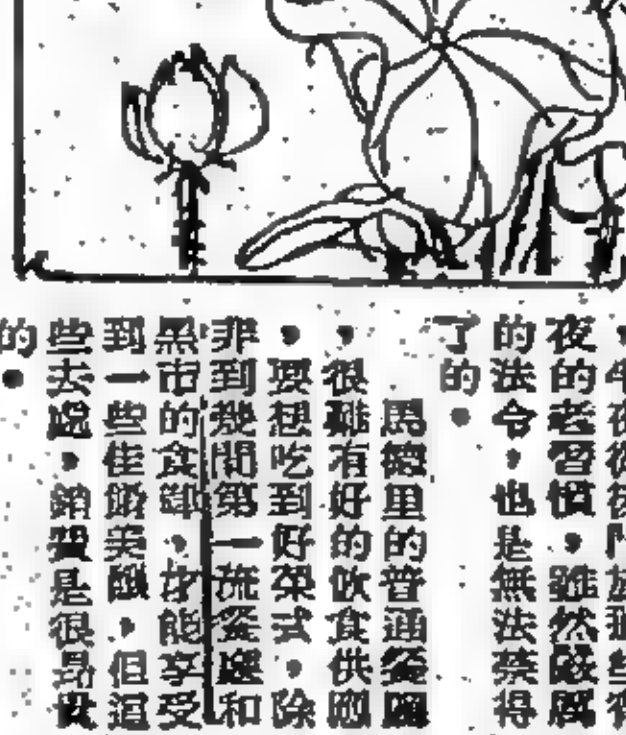 夜的老習慣，雖然嚴厲
的法令，也是無法禁得
了的。
馬德里的普通餐廳
，很難有好的飲食供應
，要想吃到好菜式，除
非到幾間第一流餐廳和
黑市的食肆，才能享受
到一些佳餚美釀，但這
些去處，銷費是很昂貴
的。